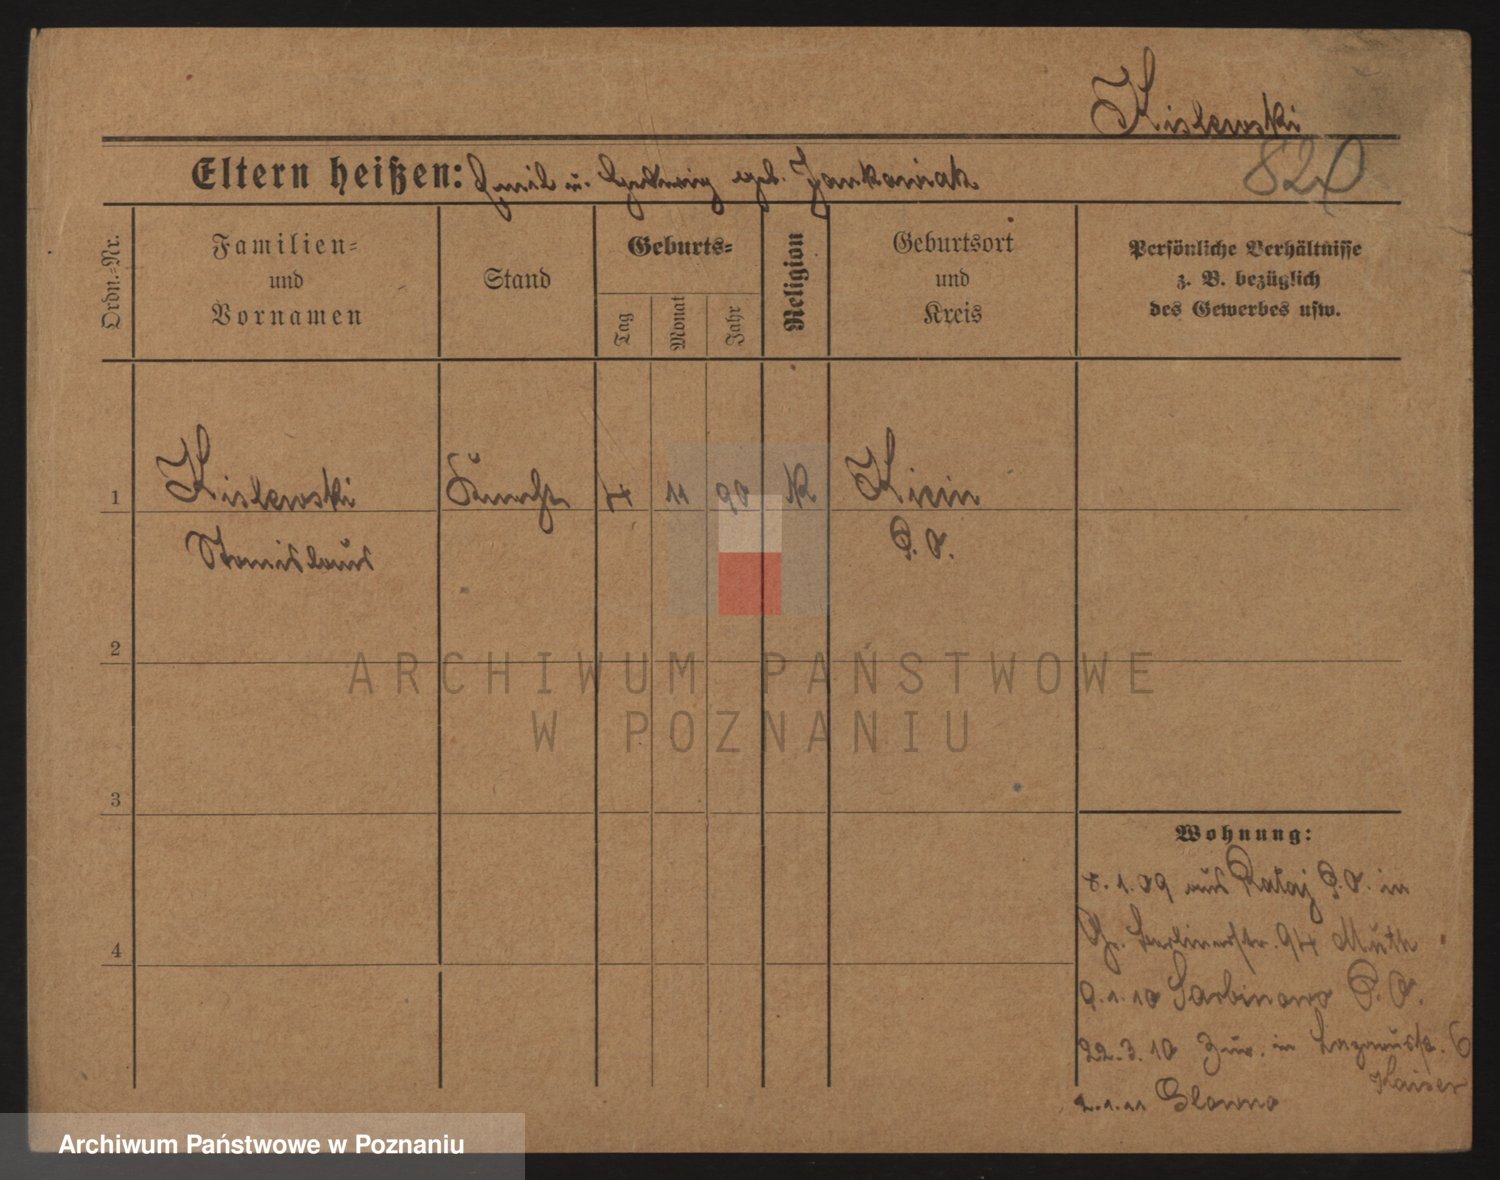 Kislewski
820
Eltern heißen: Emil u. Hedwig geb. Jankowiak
Ordn.-Nr.
Familien-
und
Vornamen
Stand
Geburts-
Tag
Monat
Jahr
Religion
Geburtsort
und
Kreis
Persönliche Verhältnisse
z. B. bezüglich
des Gewerbes usw.
1
Kislewski
Knecht
4
11
90
K
Kicin
P. O.
Stanislaus
2
ARCHIWUM PAŃSTWOWE
W POZNANIU
3
Wohnung:
8. 1. 09 aus Rataj P. O. in
Gr. Berlinerstr. 94 Muth
9. 1. 10 Sarbinowo P. O.
4
22. 3. 10 Zur. in Lazarusstr. 6
Kaiser
2. 1. 11 Glowno
Archiwum Państwowe w Poznaniu